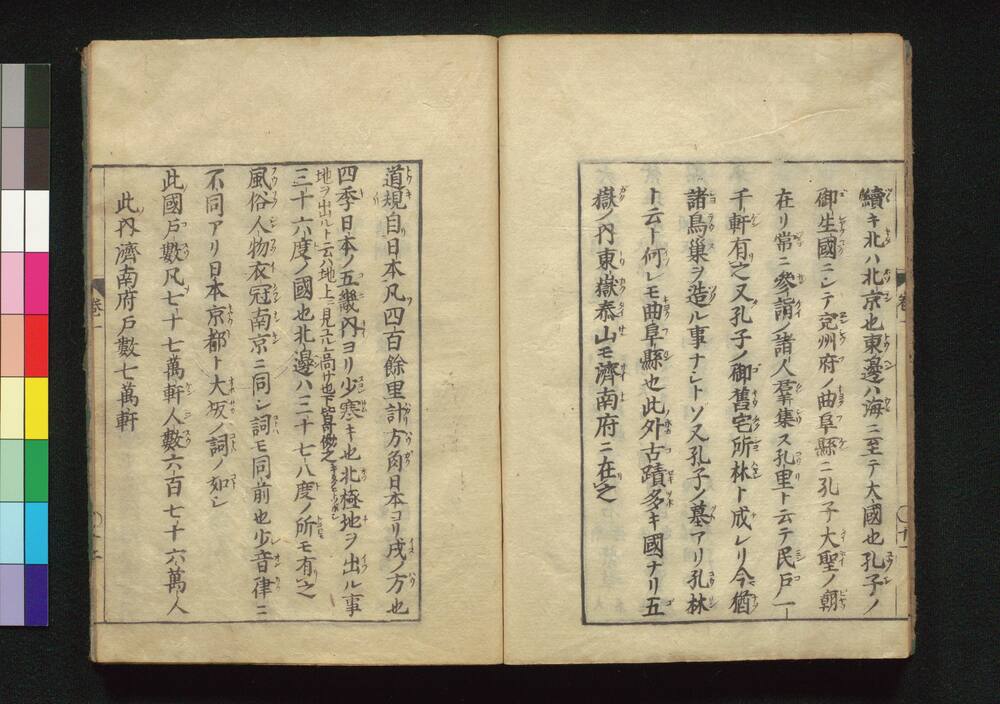 續キ北ハ北京也東邊ハ海ニ至テ大國也孔子ノ
御生國ニシテ兖州府ノ曲阜縣ニ孔子大聖ノ廟
在リ常ニ參詣ノ諸人羣集ス孔里ト云テ民戸一
千軒有之又孔子ノ御舊宅所林ト成レリ今猶
諸鳥巢ヲ造ル事ナシトソ又孔子ノ墓アリ孔林
ト云ト何レモ曲阜縣也此外古蹟多キ國ナリ五
嶽ノ內東嶽泰山モ濟南府ニ在之
卷一
道規自日本凡四百餘里計方角日本ヨリ戌ノ方也
四季日本ノ五畿內ヨリ少寒キ也北極地ヲ出ル事
地ヲ出ルト云ハ地上ニ見ユル高サ也下皆倣之
三十六度ノ國也北邊ハ三十七八度ノ所モ有之
風俗人物衣冠南京ニ同シ詞モ同前也少音律ニ
不同アリ日本京都ト大坂ノ詞ノ如シ
此國戸數凡七十七萬軒人數六百七十六萬人
此內濟南府戸數七萬軒
卷一